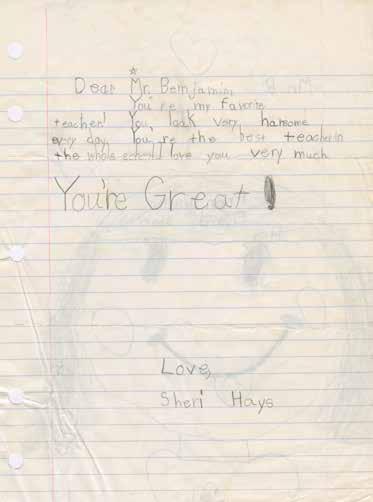 Dear Mr. Bemjamin,
You're my favorite
teacher! You look very hansome
every day. You're the best teacher in
the whole school I love you very much
You're Great!
Love,
Sheri Hays